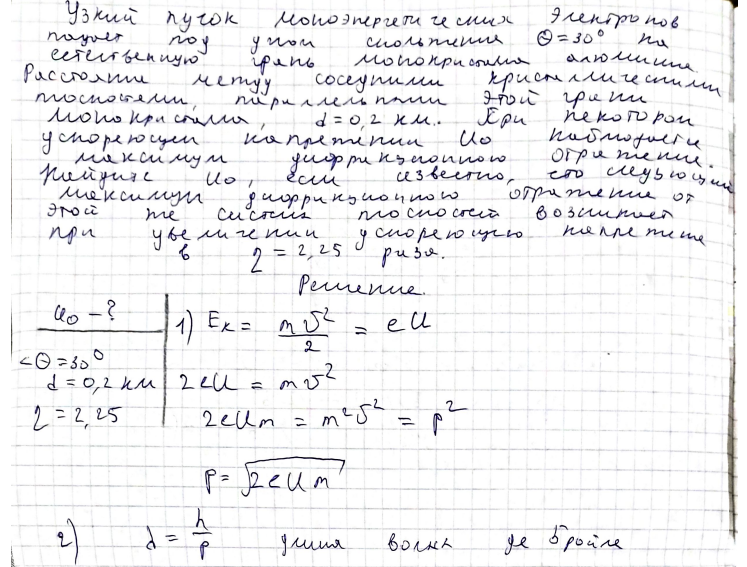 Узкий пучок моноэнергетических электронов
падает под углом скольжения Θ=30° на
естественную грань монокристалла алюминия.
Расстояние между соседними кристаллическими
плоскостями, параллельными этой грани
монокристалла, d=0,2 нм. При некотором
ускоряющем напряжении U₀ наблюдается
максимум дифракционного отражения.
Найдите U₀, если известно, что следующий
максимум дифракционного отражения от
этой же системы плоскостей возникает
при увеличении ускоряющего напряжения
в η = 2,25 раза.
Решение.
U₀ – ?
<Θ=30°
d=0,2 нм
η = 2,25
1) Eк = mυ²/2 = eU
2eU = mυ²
2eUm = m²υ² = p²
p = √2eUm
2) λ = h/p длина волны де Бройля